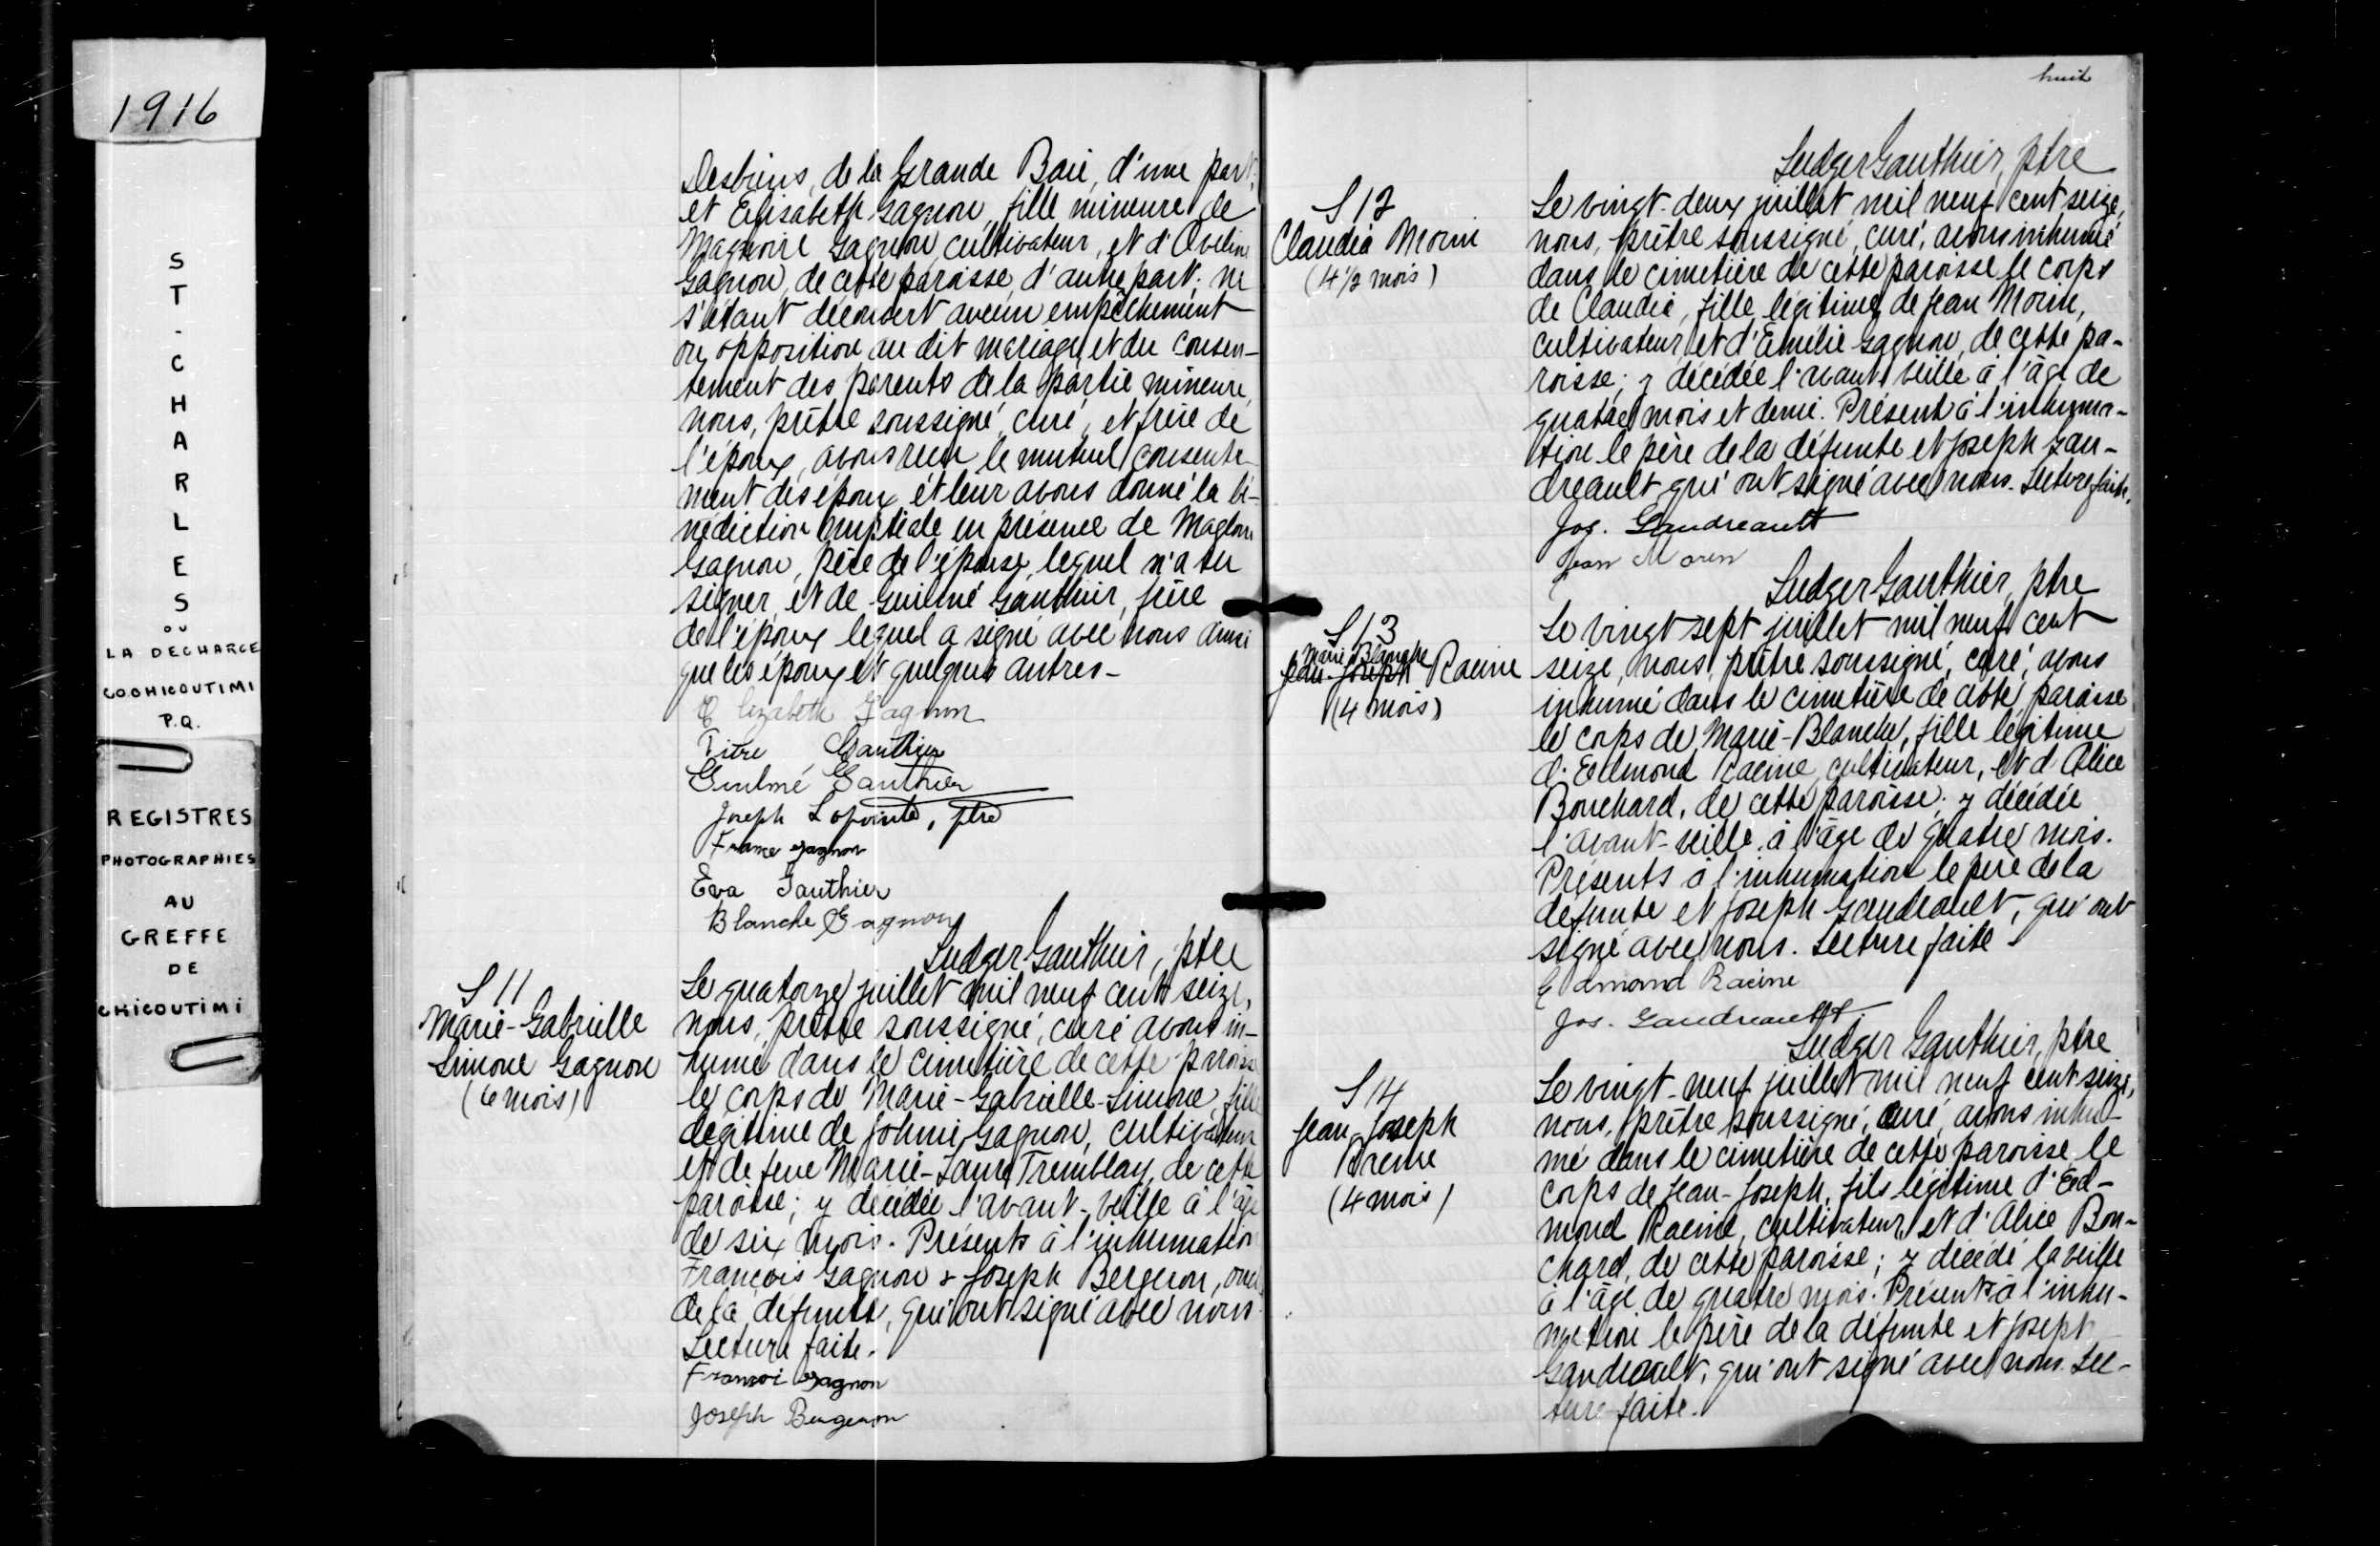 1916
ST-CHARLES
OU
LA DECHARGE
CO. CHICOUTIMI
P.Q.
REGISTRES
PHOTOGRAPHIES
AU
GREFFE
DE
CHICOUTIMI
Desbiens, de la Grande Baie, d'une part,
et Elisabeth Gagnon, fille mineure de
Magloire Gagnon cultivateur, et d'Aveline
Gagnon, de cette paroisse, d'autre part; ne
s'étant découvert aucun empêchement
ou opposition au dit mariage, et du consen-
tement des parents de la partie mineure,
nous, prêtre soussigné, curé, et frère de
l'époux, avons reçu le mutuel consente-
ment des époux et leur avons donné la bé-
nédiction nuptiale en présence de Magloire
Gagnon, père de l'épouse, lequel n'a su
signer, et de Guilmé Gauthier, frère
de l'époux lequel a signé avec nous ainsi
que les époux et quelques autres-
Elizabeth Gagnon
Pitre Gauthier
Guilmé Gauthier
Joseph Lapointe, ptre
France gagnon
Eva Gauthier
Blanche Gagnon
Ludger Gauthier, ptre
S 11
Marie-Gabrielle
Simone Gagnon
(6 mois)
Le quatorze juillet mil neuf cent seize,
nous, prêtre soussigné, curé avons in-
humé dans le cimetière de cette paroisse
le corps de Marie-Gabrielle-Simone, fille
légitime de Johnni Gagnon, cultivateur
et de feue Marie-Laure Tremblay, de cette
paroisse; y décédée l'avant-veille à l'âge
de six mois. Présents à l'inhumation
François Gagnon & Joseph Bergeron, oncles
de la défunte, qui ont signé avec nous.
Lecture faite.
Francoi gagnon
Joseph Bergeron
huit
Ludger Gauthier, ptre
S 12
Claudia Morin
(4 1/2 mois)
Le vingt-deux juillet mil neuf cent seize,
nous, prêtre soussigné, curé, avons inhumé
dans le cimetière de cette paroisse le corps
de Claudia, fille légitime de Jean Morin,
cultivateur et d'Emélie Gagnon, de cette pa-
roisse; y décédée l'avant veille à l'âge de
quatre mois et demi. Présents à l'inhuma-
tion le père de la défunte et Joseph Gau-
dreault qui ont signé avec nous. Lecture faite.
Jos. Gaudreault
Jean Morin
Ludger Gauthier, ptre
S 13
Marie Blanche
Jean-Joseph Racine
(4 mois)
Le vingt-sept juillet mil neuf cent
seize, nous, prêtre soussigné, curé, avons
inhumé dans le cimetière de cette paroisse
le corps de Marie-Blanche, fille légitime
d'Edmond Racine cultivateur, et d'Alice
Bouchard, de cette paroisse; y décédée
l'avant-veille à l'âge de quatre mois.
Présents à l'inhumation le père de la
défunte et Joseph Gaudreault, qui ont
signé avec nous. Lecture faite
Edmond Racine
Jos. Gaudreault
Ludger Gauthier, ptre
S 14
Jean-Joseph
Racine
(4 mois)
Le vingt-neuf juillet mil neuf cent seize,
nous, prêtre soussigné, curé, avons inhu-
mé dans le cimetière de cette paroisse le
corps de Jean-Joseph, fils légitime d'Ed-
mond Racine, cultivateur et d'Alice Bou-
chard, de cette paroisse; y décédé la veille
à l'âge de quatre mois. Présents à l'inhu-
mation le père de la défunte et Joseph
Gaudreault, qui ont signé avec nous. Lec-
ture faite.